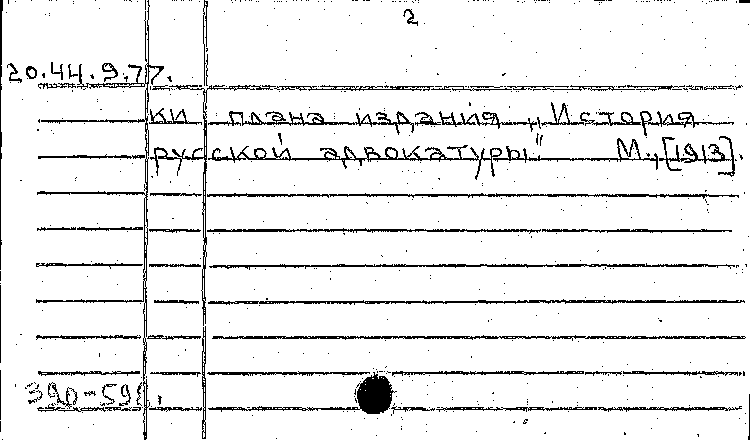 2
20.44.9.77.
ки плана издания „История
русской адвокатуры" М., [1913].
390-598.